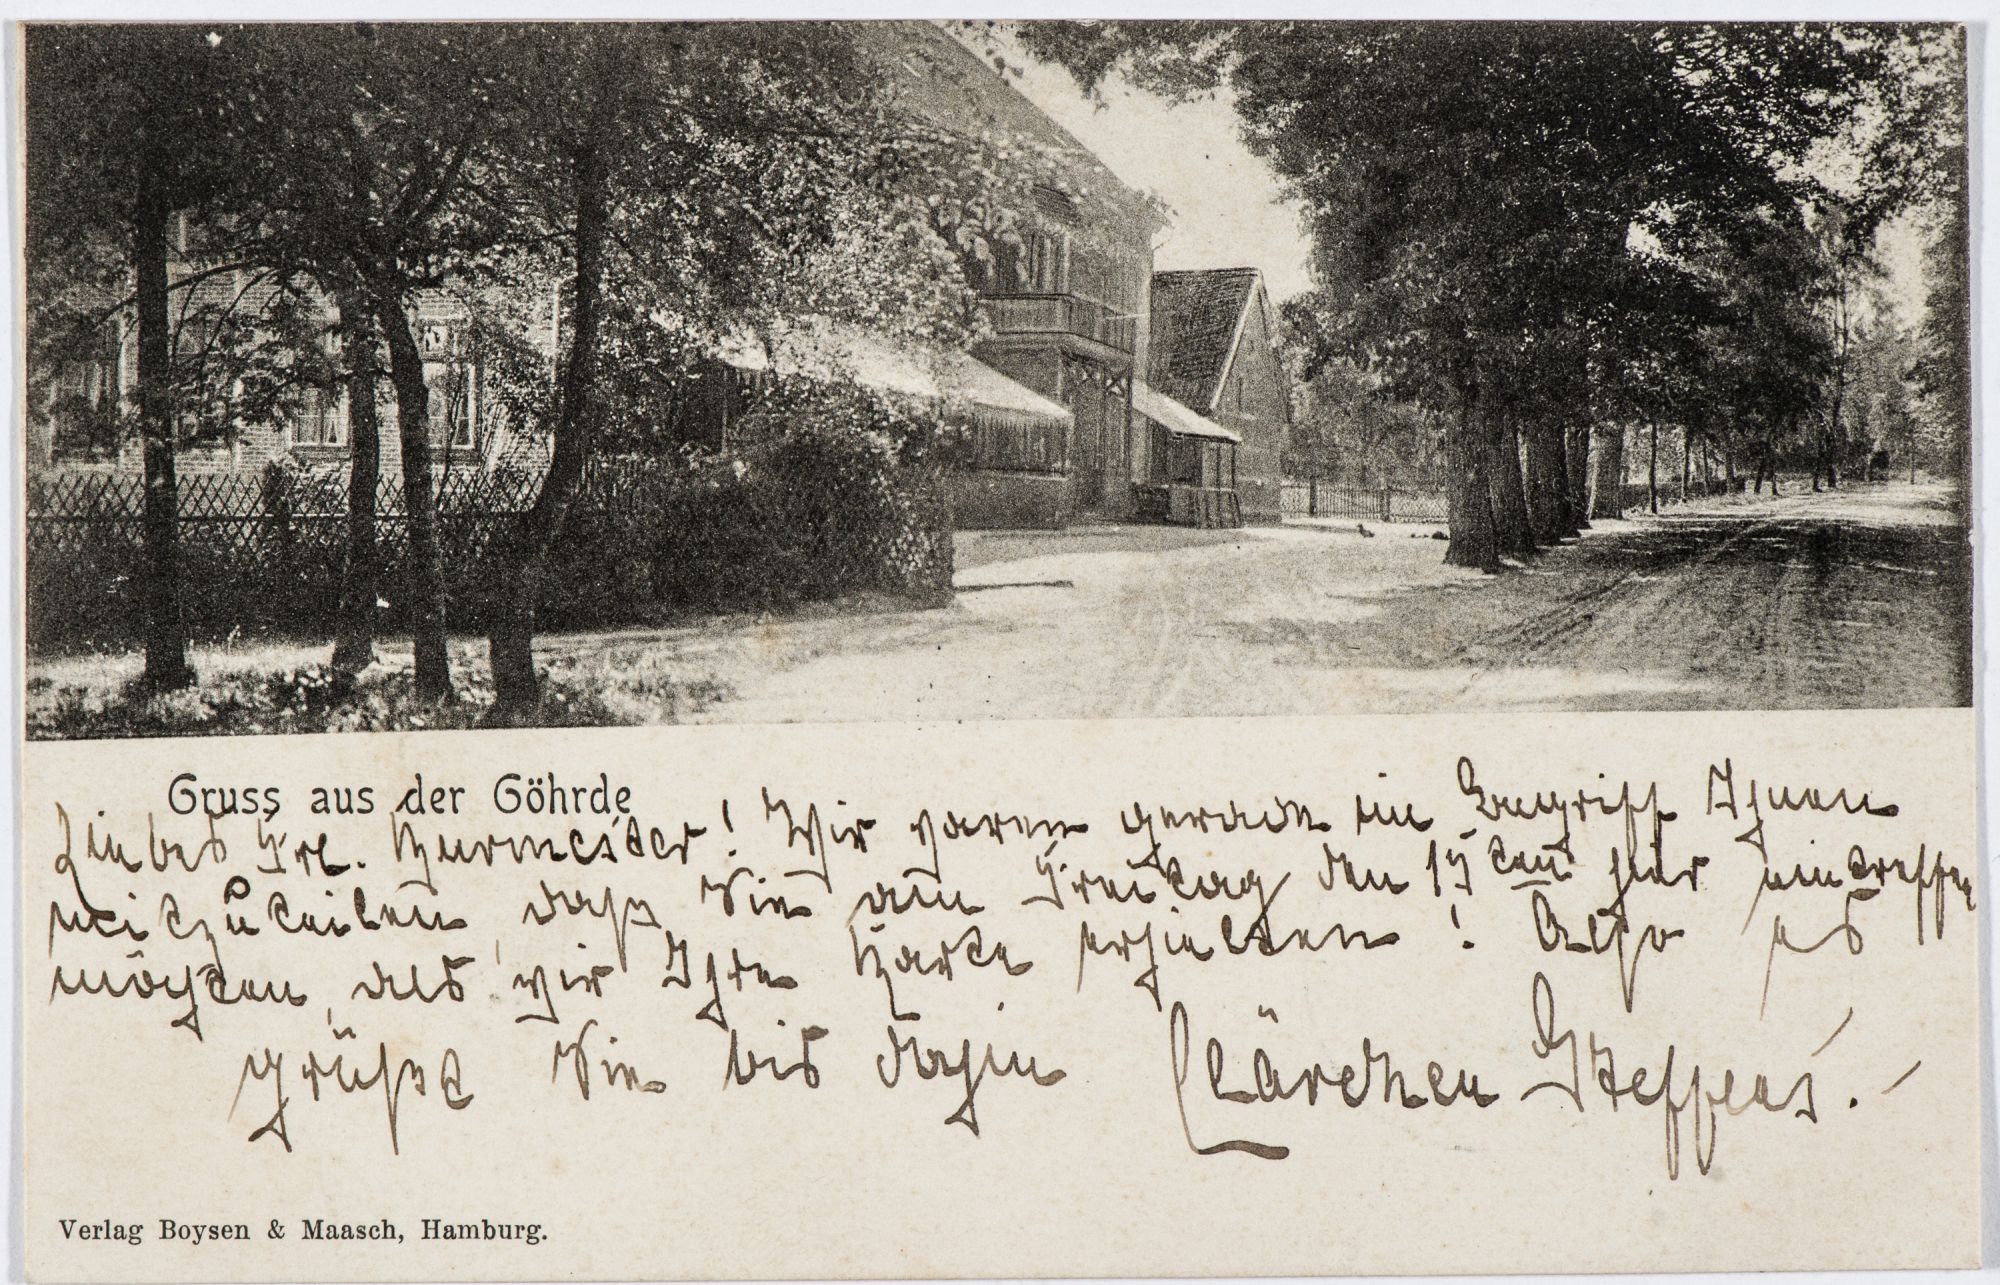 Gruss aus der Göhrde
Liebes Frl. Burmester! Wir waren gerade im Begriff Ihnen
mitzuteilen, daß Sie am Freitag den ten hier eintreffen
möchten, als wir Ihre Karte erhielten! Also es
grüßt Sie bis dahin Clärchen Steffens.
Verlag Boysen & Maasch, Hamburg.